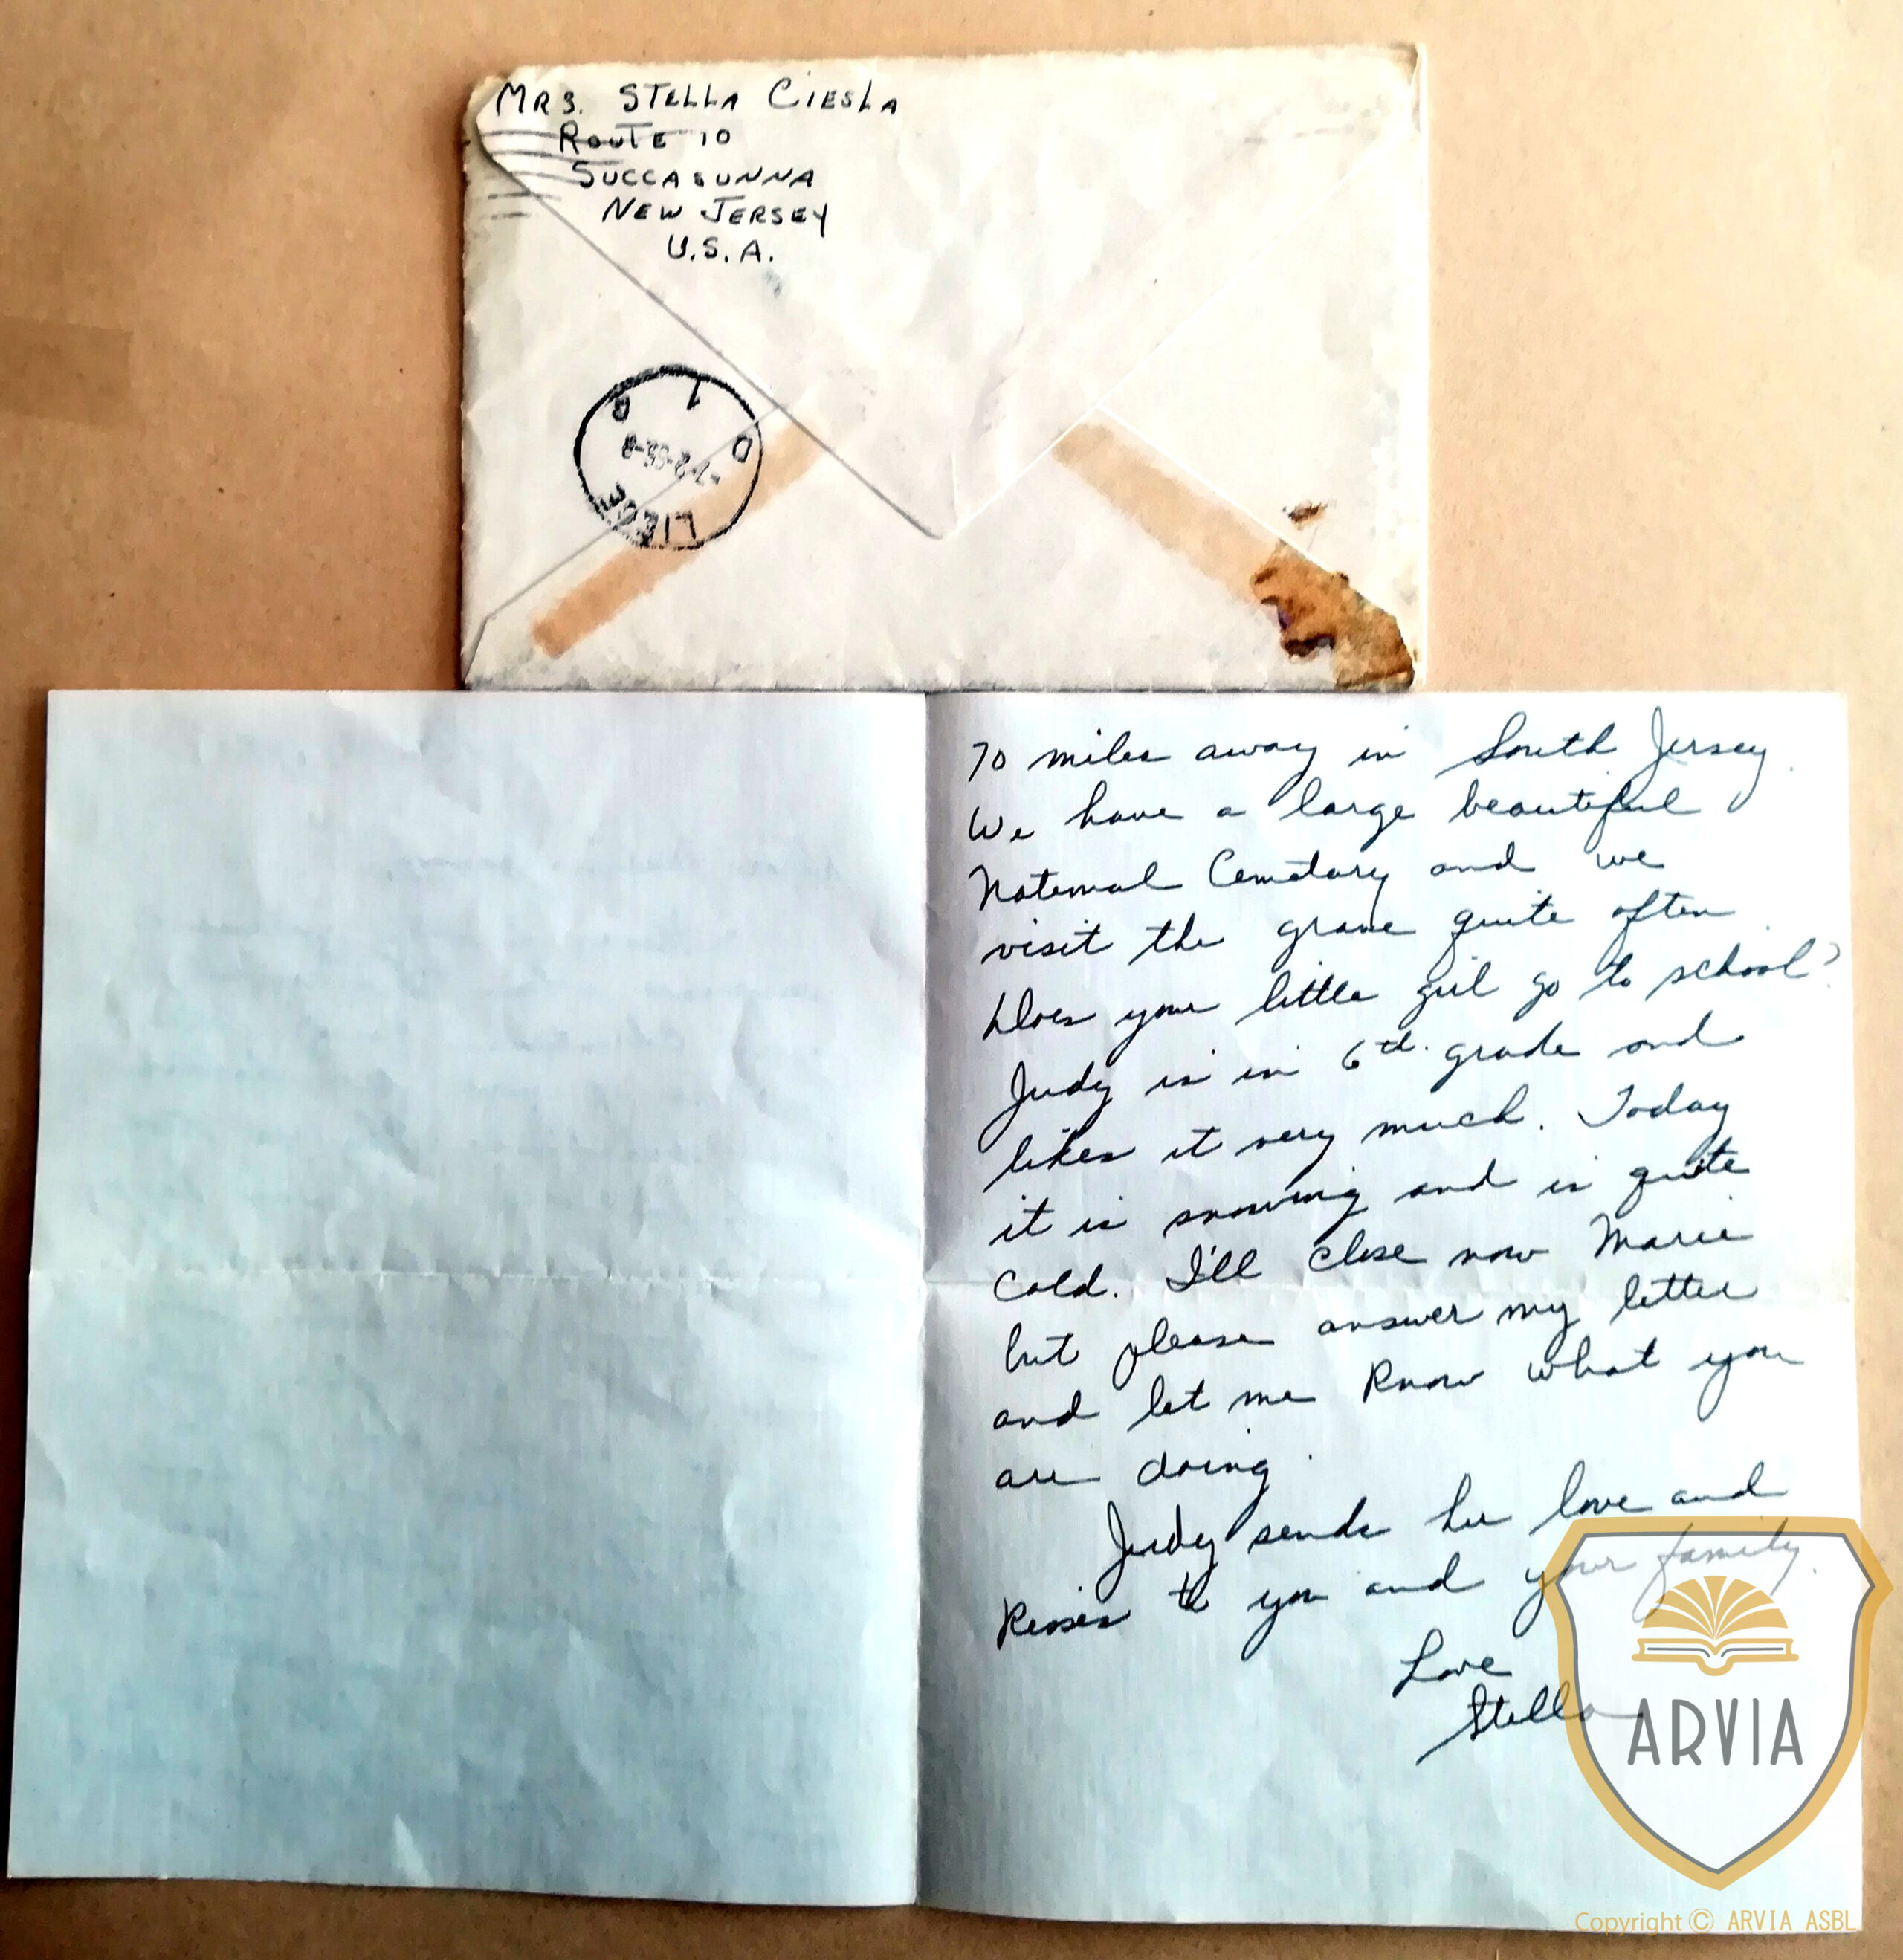 MRS. STELLA CIESLA
ROUTE 10
SUCCASUNNA
NEW JERSEY
U.S.A.
LIEGE
1
D
70 miles away in South Jersey.
We have a large beautiful
National Cemetary and we
visit the grave quite often.
Does your little girl go to school?
Judy is in 6th. grade and
likes it very much. Today
it is snowing and is quite
cold. I'll close now Marie
but please answer my letter
and let me know what you
are doing.
Judy sends her love and
kisses to you and your family.
Love
Stella
ARVIA
Copyright © ARVIA ASBL